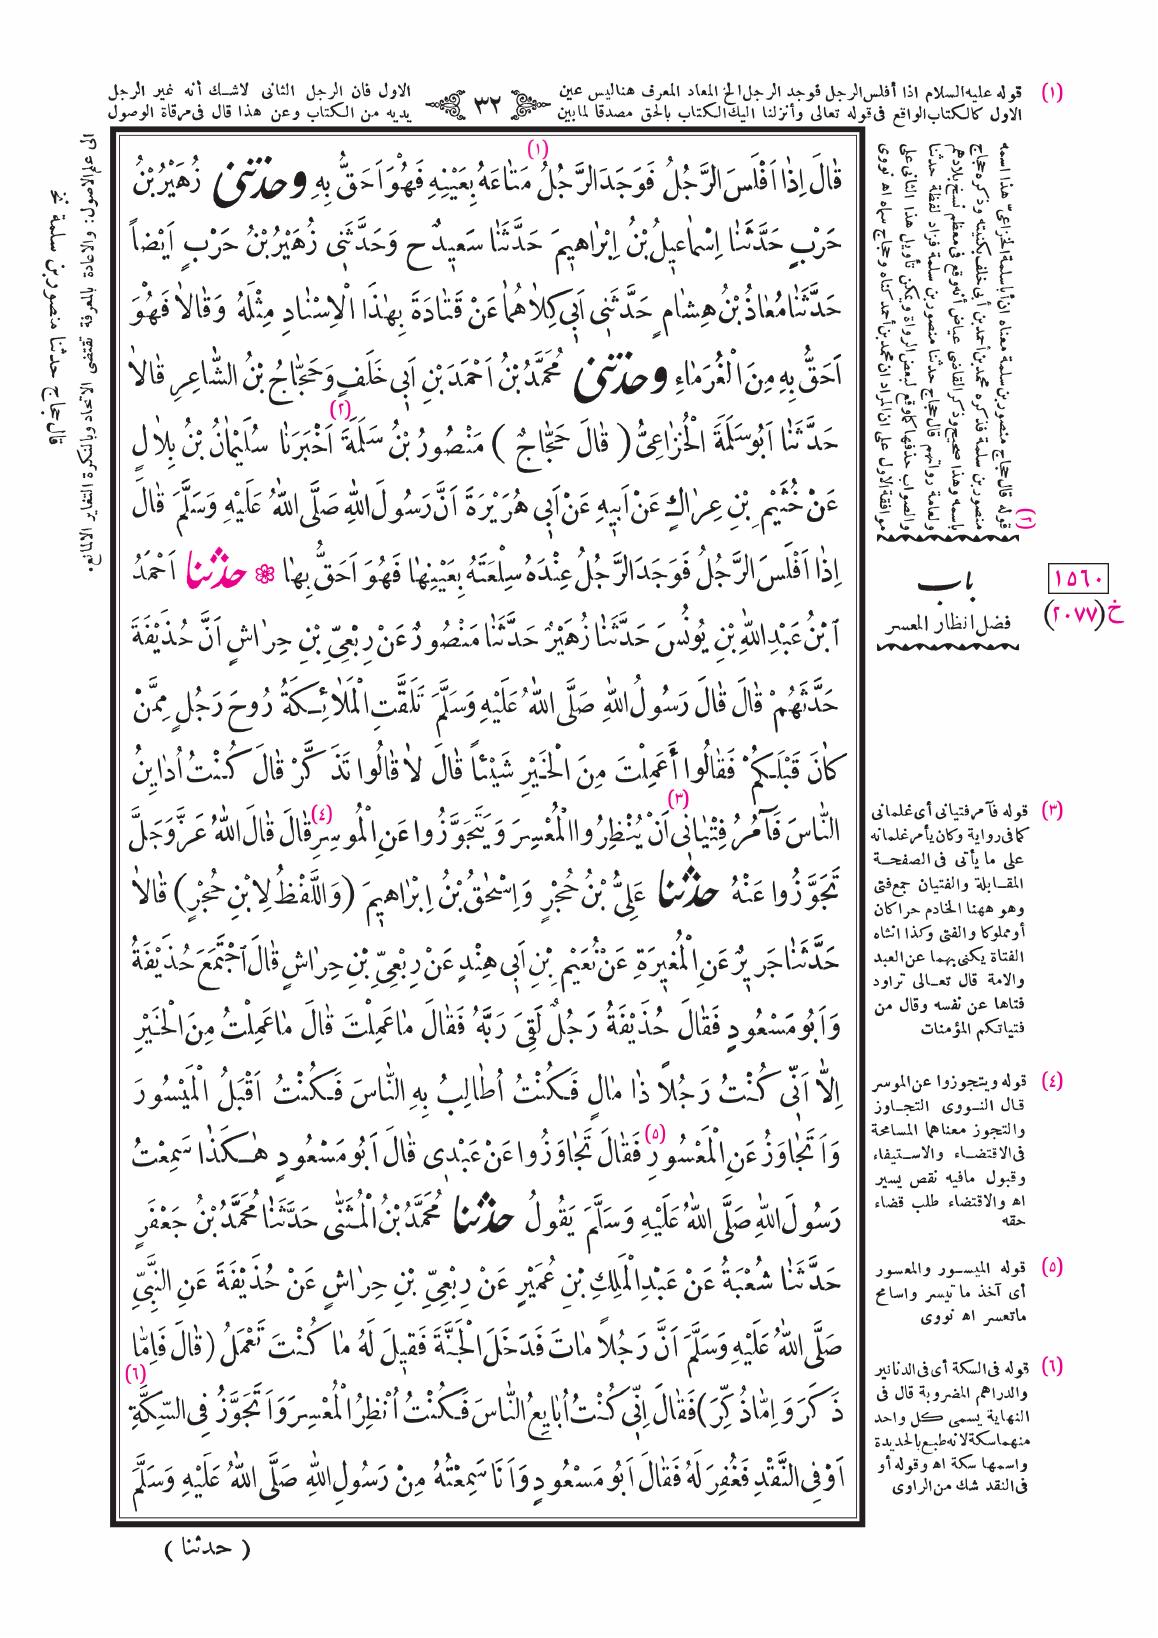 (١) قوله عليه السلام اذا أفلس الرجل فوجد الرجل الخ المعاد المعرف هنا ليس عين
الاول كالكتاب الواقع فى قوله تعالى وأنزلنا اليك الكتاب بالحق مصدقا لما بين
٣٢
الاول فان الرجل الثانى لاشك أنه غير الرجل
يديه من الكتاب وعن هذا قال فى مرقاة الوصول
الى علم الاصول: والاعادة بالمعرفة تقتضى الاتحاد وبالنكرة التغاير الا لمانع.
قال حجاج حدثنا منصور بن سلمة نخ
قَالَ اِذَا اَفْلَسَ الرَّجُلُ فَوَجَدَ الرَّجُلُ (١) مَتَاعَهُ بِعَيْنِهِ فَهُوَ اَحَقُّ بِهِ وحَدَّثَنِى زُهَيْرُ بْنُ
حَرْبٍ حَدَّثَنَا اِسْمَاعِيلُ بْنُ اِبْرَاهِيمَ حَدَّثَنَا سَعِيدٌ ح وَحَدَّثَنِى زُهَيْرُ بْنُ حَرْبٍ اَيْضاً
حَدَّثَنَا مُعَاذُ بْنُ هِشَامٍ حَدَّثَنِى اَبِى كِلَاهُمَا عَنْ قَتَادَةَ بِهٰذَا الْاِسْنَادِ مِثْلَهُ وَقَالَا فَهُوَ
اَحَقُّ بِهِ مِنَ الْغُرَمَاءِ وحَدَّثَنِى مُحَمَّدُ بْنُ اَحْمَدَ بْنِ اَبِى خَلَفٍ وَحَجَّاجُ بْنُ الشَّاعِرِ قَالَا
حَدَّثَنَا اَبُو سَلَمَةَ الْخُزَاعِىُّ (قَالَ حَجَّاجٌ) مَنْصُورُ بْنُ سَلَمَةَ (٢) اَخْبَرَنَا سُلَيْمَانُ بْنُ بِلَالٍ
عَنْ خُثَيْمِ بْنِ عِرَاكٍ عَنْ اَبِيهِ عَنْ اَبِى هُرَيْرَةَ اَنَّ رَسُولَ اللهِ صَلَّى اللهُ عَلَيْهِ وَسَلَّمَ قَالَ
اِذَا اَفْلَسَ الرَّجُلُ فَوَجَدَ الرَّجُلُ عِنْدَهُ سِلْعَتَهُ بِعَيْنِهَا فَهُوَ اَحَقُّ بِهَا ❁ حَدَّثَنَا اَحْمَدُ
ابْنُ عَبْدِ اللهِ بْنِ يُونُسَ حَدَّثَنَا زُهَيْرٌ حَدَّثَنَا مَنْصُورٌ عَنْ رِبْعِىِّ بْنِ حِرَاشٍ اَنَّ حُذَيْفَةَ
حَدَّثَهُمْ قَالَ قَالَ رَسُولُ اللهِ صَلَّى اللهُ عَلَيْهِ وَسَلَّمَ تَلَقَّتِ الْمَلَائِكَةُ رُوحَ رَجُلٍ مِمَّنْ
كَانَ قَبْلَكُمْ فَقَالُوا أَعَمِلْتَ مِنَ الْخَيْرِ شَيْئاً قَالَ لَا قَالُوا تَذَكَّرْ قَالَ كُنْتُ اُدَايِنُ
النَّاسَ فَآمُرُ فِتْيَانِى (٣) اَنْ يُنْظِرُوا الْمُعْسِرَ وَيَتَجَوَّزُوا عَنِ الْمُوسِرِ (٤) قَالَ قَالَ اللهُ عَزَّ وَجَلَّ
تَجَوَّزُوا عَنْهُ حَدَّثَنَا عَلِىُّ بْنُ حُجْرٍ وَاِسْحٰقُ بْنُ اِبْرَاهِيمَ (وَاللَّفْظُ لِابْنِ حُجْرٍ) قَالَا
حَدَّثَنَا جَرِيرٌ عَنِ الْمُغِيرَةِ عَنْ نُعَيْمِ بْنِ اَبِى هِنْدٍ عَنْ رِبْعِىِّ بْنِ حِرَاشٍ قَالَ اجْتَمَعَ حُذَيْفَةُ
وَاَبُو مَسْعُودٍ فَقَالَ حُذَيْفَةُ رَجُلٌ لَقِىَ رَبَّهُ فَقَالَ مَا عَمِلْتَ قَالَ مَا عَمِلْتُ مِنَ الْخَيْرِ
اِلَّا اَنِّى كُنْتُ رَجُلاً ذَا مَالٍ فَكُنْتُ اُطَالِبُ بِهِ النَّاسَ فَكُنْتُ اَقْبَلُ الْمَيْسُورَ
وَاَتَجَاوَزُ عَنِ الْمَعْسُورِ (٥) فَقَالَ تَجَاوَزُوا عَنْ عَبْدِى قَالَ اَبُو مَسْعُودٍ هٰكَذَا سَمِعْتُ
رَسُولَ اللهِ صَلَّى اللهُ عَلَيْهِ وَسَلَّمَ يَقُولُ حَدَّثَنَا مُحَمَّدُ بْنُ الْمُثَنَّى حَدَّثَنَا مُحَمَّدُ بْنُ جَعْفَرٍ
حَدَّثَنَا شُعْبَةُ عَنْ عَبْدِ الْمَلِكِ بْنِ عُمَيْرٍ عَنْ رِبْعِىِّ بْنِ حِرَاشٍ عَنْ حُذَيْفَةَ عَنِ النَّبِىِّ
صَلَّى اللهُ عَلَيْهِ وَسَلَّمَ اَنَّ رَجُلاً مَاتَ فَدَخَلَ الْجَنَّةَ فَقِيلَ لَهُ مَا كُنْتَ تَعْمَلُ (قَالَ فَاِمَّا
ذَكَرَ وَاِمَّا ذُكِّرَ) فَقَالَ اِنِّى كُنْتُ اُبَايِعُ النَّاسَ فَكُنْتُ اُنْظِرُ الْمُعْسِرَ وَاَتَجَوَّزُ فِى السِّكَّةِ (٦)
اَوْ فِى النَّقْدِ فَغُفِرَ لَهُ فَقَالَ اَبُو مَسْعُودٍ وَاَنَا سَمِعْتُهُ مِنْ رَسُولِ اللهِ صَلَّى اللهُ عَلَيْهِ وَسَلَّمَ
(حدثنا)
(٢) قوله قال حجاج منصور بن سلمة معناه ان أبا سلمة الخزاعىّ هذا اسمه
منصور بن سلمة فذكره محمد بن أحمد بن أبى خلف بكنيته وذكره حجاج
باسمه وهذا صحيح وذكر القاضى عياض أنه وقع فى معظم نسخ بلادهم
ولعامة رواتهم قال حجاج حدثنا منصور بن سلمة فزاد لفظة حدثنا
والصواب حذفها كما وقع لبعض الرواة ويمكن تأويل هذا الثانى على
موافقة الاول على ان المراد ان محمد بن أحمد كناه وحجاج سماه اه نووى
باب
فضل انظار المعسر
١٥٦٠
خ (٢٠٧٧)
(٣) قوله فآمر فتيانى أى غلمانى
كما فى رواية وكان يأمر غلمانه
على ما يأتى فى الصفحة
المقابلة والفتيان جمع فتى
وهو ههنا الخادم حرا كان
أو مملوكا والفتى وكذا انثاه
الفتاة يكنى بهما عن العبد
والامة قال تعالى تراود
فتاها عن نفسه وقال من
فتياتكم المؤمنات
(٤) قوله ويتجوزوا عن الموسر
قال النووى التجاوز
والتجوز معناهما المسامحة
فى الاقتضاء والاستيفاء
وقبول مافيه نقص يسير
اه والاقتضاء طلب قضاء
حقه
(٥) قوله الميسور والمعسور
أى آخذ ما تيسر واسامح
ما تعسر اه نووى
(٦) قوله فى السكة أى فى الدنانير
والدراهم المضروبة قال فى
النهاية يسمى كل واحد
منهما سكة لانه طبع بالحديدة
واسمها سكة اه وقوله أو
فى النقد شك من الراوى